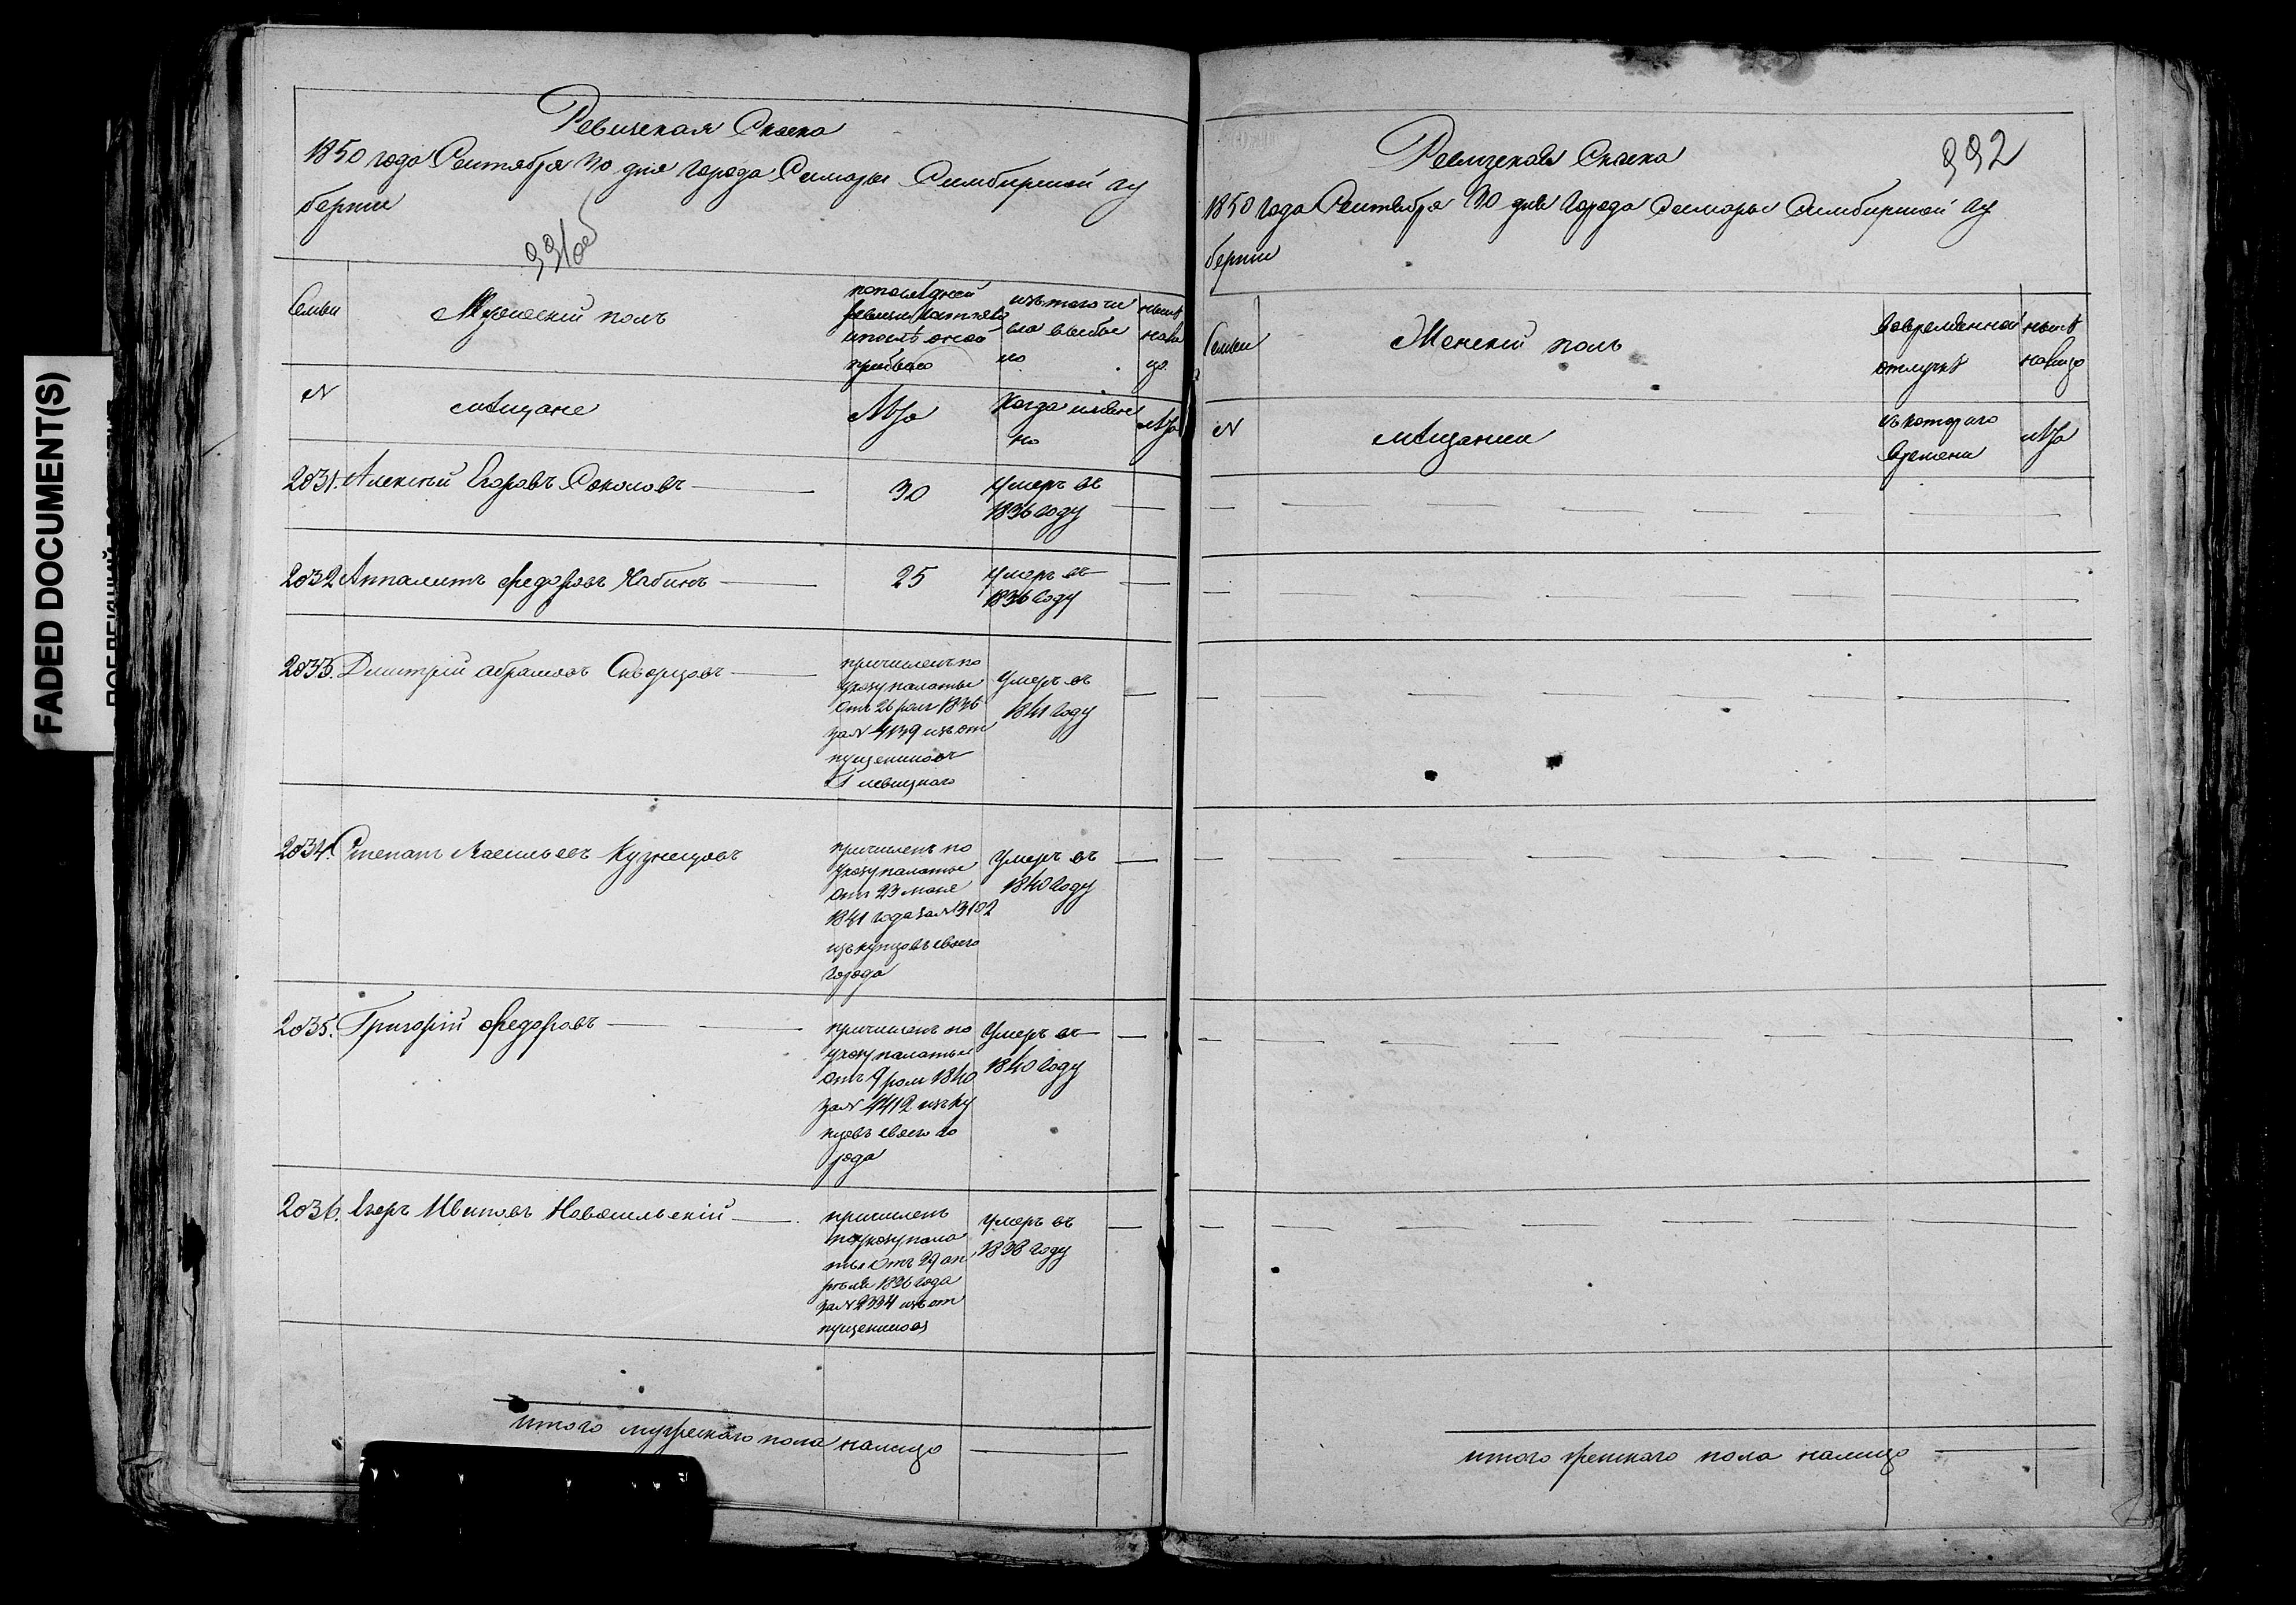 FADED DOCUMENT(S)
Ревизская Сказка
1850 года Сентября 30 дня города Самары Симбирской гу
бернии
331об
Семьи
Мужеский полъ
по последней
ревизіи состояло
и после оной
прибыло
изъ того чи
сла выбы
ло
ныне
на ли
цо
N
мѣщане
Лѣта
Когда имянно
Лѣта
2031. Алексѣй Егоровъ Соколовъ
30
Умеръ въ
1836 году
2032 Апполитъ Федоровъ
25
Умеръ въ
1836 году
2033. Дмитрій Абрамовъ Скворцовъ
причисленъ по
указу палаты
отъ 26 1836
за N 4139 изъ от
пущенниковъ
Г Левицкаго
Умеръ въ
1841 году
2034. Степанъ Васильевъ Кузнецовъ
причисленъ по
указу палаты
отъ 23 мая
1841 года за N 3102
изъ купцовъ своего
города
Умеръ въ
1840 году
2035. Григорій Федоровъ
причисленъ по
указу палаты
отъ 9 1840
за N 4412 изъ ку
пцовъ своего го
рода
Умеръ въ
1840 году
2036. Егоръ Ивановъ Новосильскій
причисленъ
по указу пала
ты отъ 29 ап
рѣля 1836 года
за N 2334 изъ от
пущенников
Умеръ въ
1838 году
итого мужескаго пола налицо
Ревизская Сказка
332
1850 года Сентября 30 дня города Самары Симбирской гу
бернии
Семьи
Женскій полъ
Во временной
отлучкѣ
нынѣ
на лицо
N
мѣщанки
съ котораго
времени
лѣта
итого женскаго пола налицо